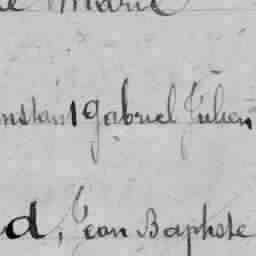 Marie
nstant Gabriel Julien
d, Jean Baptiste